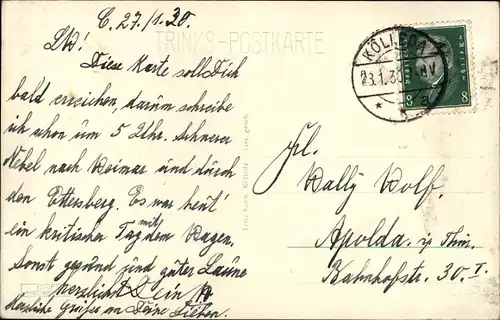 C. 27./1.30.
TRINKS-POSTKARTE
LW! Diese Karte soll Dich
bald erreichen, darum schreibe
ich schon um 5 Uhr. Schwerer
Nebel nach Weimar und durch
den Ettersberg. Es war heut'
ein kritischer Tag mit dem Wagen,
Sonst gesund und guter Laune
herzlichst Dein
Herzliche Grüße an Deine Lieben.
KÖLLEDA
8
8
Frl.
Wally Wolf,
Apolda i/ Thür.
Bahnhofstr. 30. I.